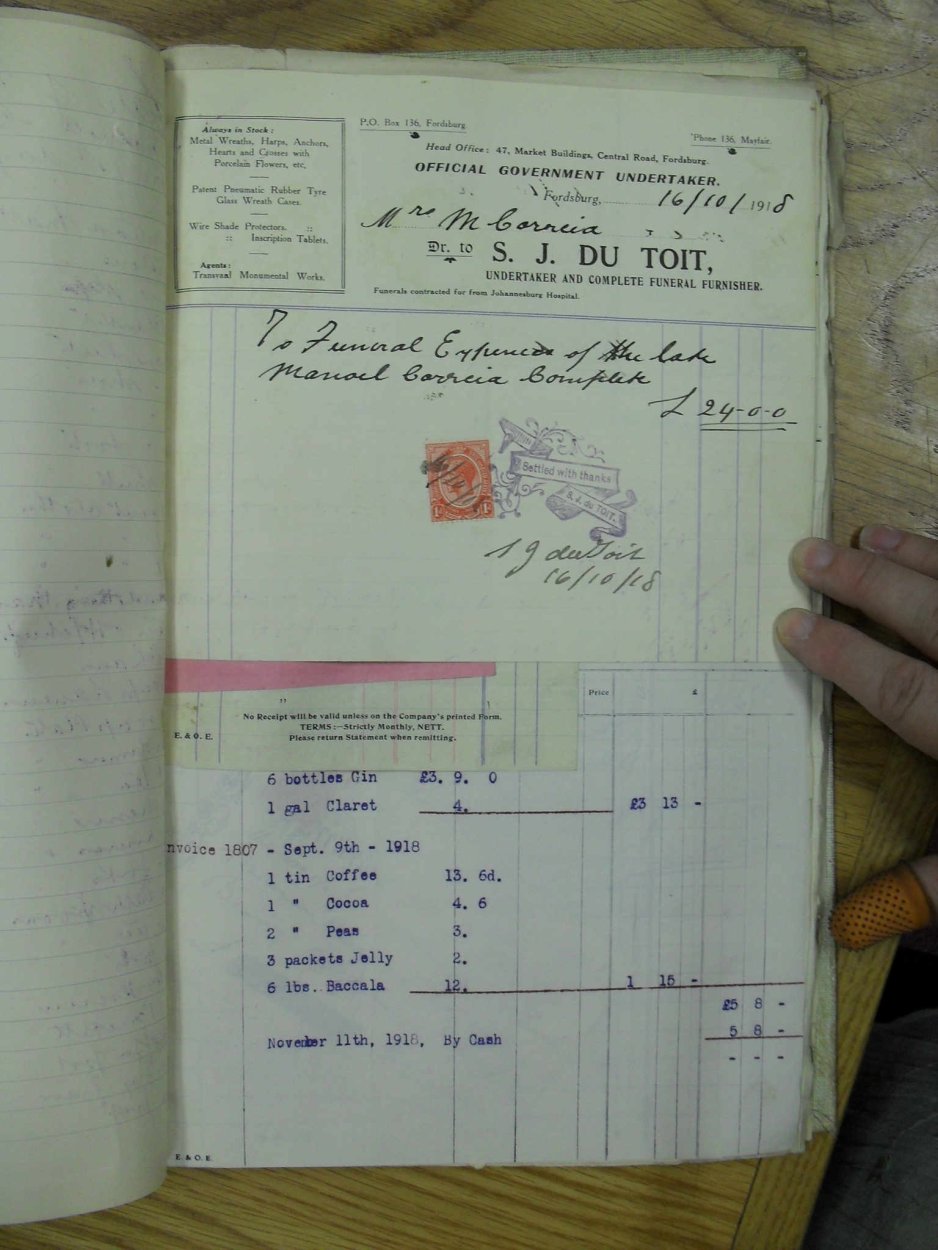 Always in Stock :
Metal Wreaths, Harps, Anchors,
Hearts and Crosses with
Porcelain Flowers, etc.
Patent Pneumatic Rubber Tyre
Glass Wreath Cases.
Wire Shade Protectors. ::
:: Inscription Tablets.
Agents :
Transvaal Monumental Works.
P.O. Box 136, Fordsburg
'Phone 136, Mayfair.
Head Office : 47, Market Buildings, Central Road, Fordsburg.
OFFICIAL GOVERNMENT UNDERTAKER.
Fordsburg, 16/10/1918
Mrs M Correia
Dr. to S. J. DU TOIT,
UNDERTAKER AND COMPLETE FUNERAL FURNISHER.
Funerals contracted for from Johannesburg Hospital.
To Funeral Expences of the late
Manoel Correia Complete
£ 24-0-0
16/10/18
1d 1d
Settled with thanks
S. J. du TOIT.
S J du Toit
16/10/18
Price £
"
No Receipt will be valid unless on the Company's printed Form.
TERMS :—Strictly Monthly, NETT.
E. & O. E.
Please return Statement when remitting.
6 bottles Gin £3. 9. 0
1 gal Claret 4. £3 13 -
nvoice 1807 - Sept. 9th - 1918
1 tin Coffee 13. 6d.
1 " Cocoa 4. 6
2 " Peas 3.
3 packets Jelly 2.
6 lbs. Baccala 12. 1 15 -
£5 8 -
5 8 -
November 11th, 1918, By Cash
- - -
E. & O. E.